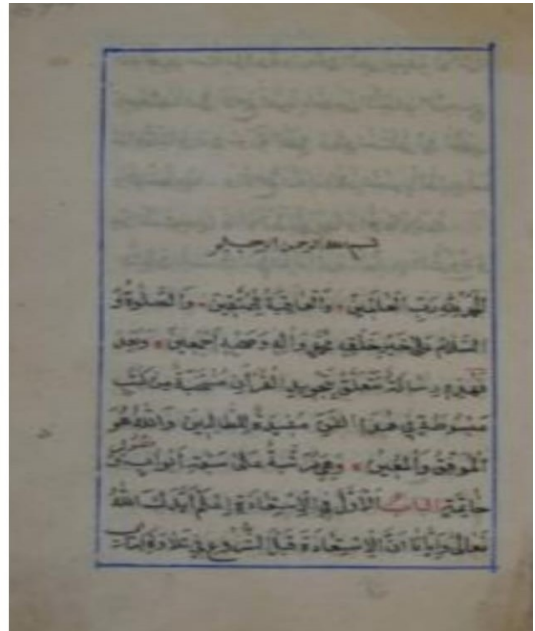 بسم الله الرحمن الرحيم
الحمد لله رب العلمين والعاقبة للمتقين والصلوة و
السلام على خير خلقه محمد واله وصحبه اجمعين وبعد
فهذه رسالة تتعلق بتجويد القرآن منتخبة من كتب
مبسوطة في هذا الفن مفيدة للطالبين والله هو
الموفق والمعين وهي مرتبة على سبعة ابواب
خاتمة الباب الاول في الاستعاذة اعلم ايدك الله
تعالى وايانا ان الاستعاذة قبل الشروع في تلاوة